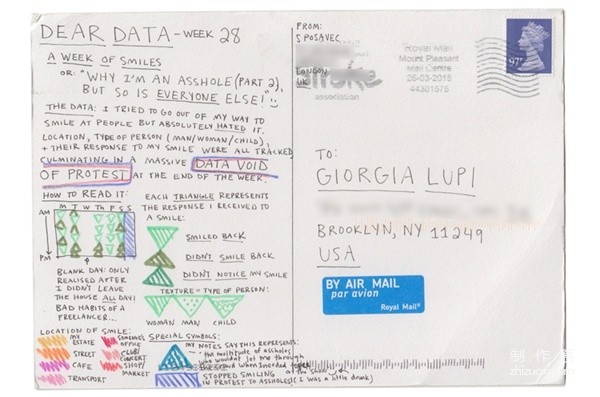 DEAR DATA - WEEK 28
A WEEK OF SMILES
OR: "WHY I'M AN ASSHOLE (PART 2),
BUT SO IS EVERYONE ELSE!"
THE DATA: I TRIED TO GO OUT OF MY WAY TO
SMILE AT PEOPLE BUT ABSOLUTELY HATED IT.
LOCATION, TYPE OF PERSON (MAN/WOMAN/CHILD),
+ THEIR RESPONSE TO MY SMILE WERE ALL TRACKED
CULMINATING IN A MASSIVE DATA VOID
OF PROTEST AT THE END OF THE WEEK.
HOW TO READ IT:
M T W Th F S S
AM
PM
BLANK DAY: ONLY
REALISED AFTER
I DIDN'T LEAVE
THE HOUSE ALL DAY!
BAD HABITS OF A
FREELANCER...
EACH TRIANGLE REPRESENTS
THE RESPONSE I RECEIVED TO
A SMILE:
SMILED BACK
DIDN'T SMILE BACK
DIDN'T NOTICE MY SMILE
TEXTURE = TYPE OF PERSON:
WOMAN MAN CHILD
LOCATION OF SMILE:
MY ESTATE
STREET
CAFE
TRANSPORT
SOMEONE'S OFFICE
CLUB/
CONCERT
SHOP/
MARKET
SPECIAL SYMBOLS:
MY NOTES SAY THIS REPRESENTS:
"the multitude of assholes
who wouldn't let me through
the crowd when I needed to pee
at the show"
STOPPED SMILING
IN PROTEST TO ASSHOLES (I was a little drunk)
FROM:
S POSAVEC
LONDON
UK
association
Royal Mail
Mount Pleasant
Mail Centre
26-03-2015
44301575
97P
TO:
GIORGIA LUPI
BROOKLYN, NY 11249
USA
BY AIR MAIL
par avion
Royal Mail